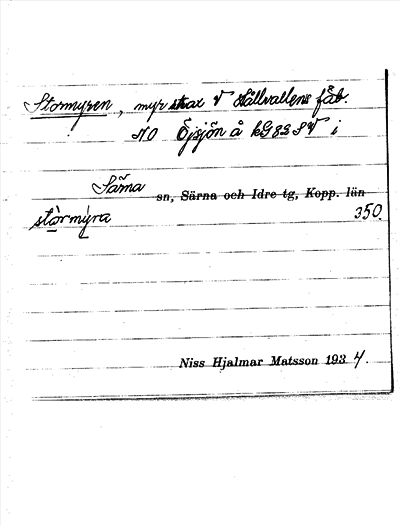 Stormyren, myr strax V Hällvallens fåb.
NO Öjsjön å kG 83 SV i
Särna sn, Särna och Idre tg, Kopp. län
stòrmýra 350.
Niss Hjalmar Matsson 1934.